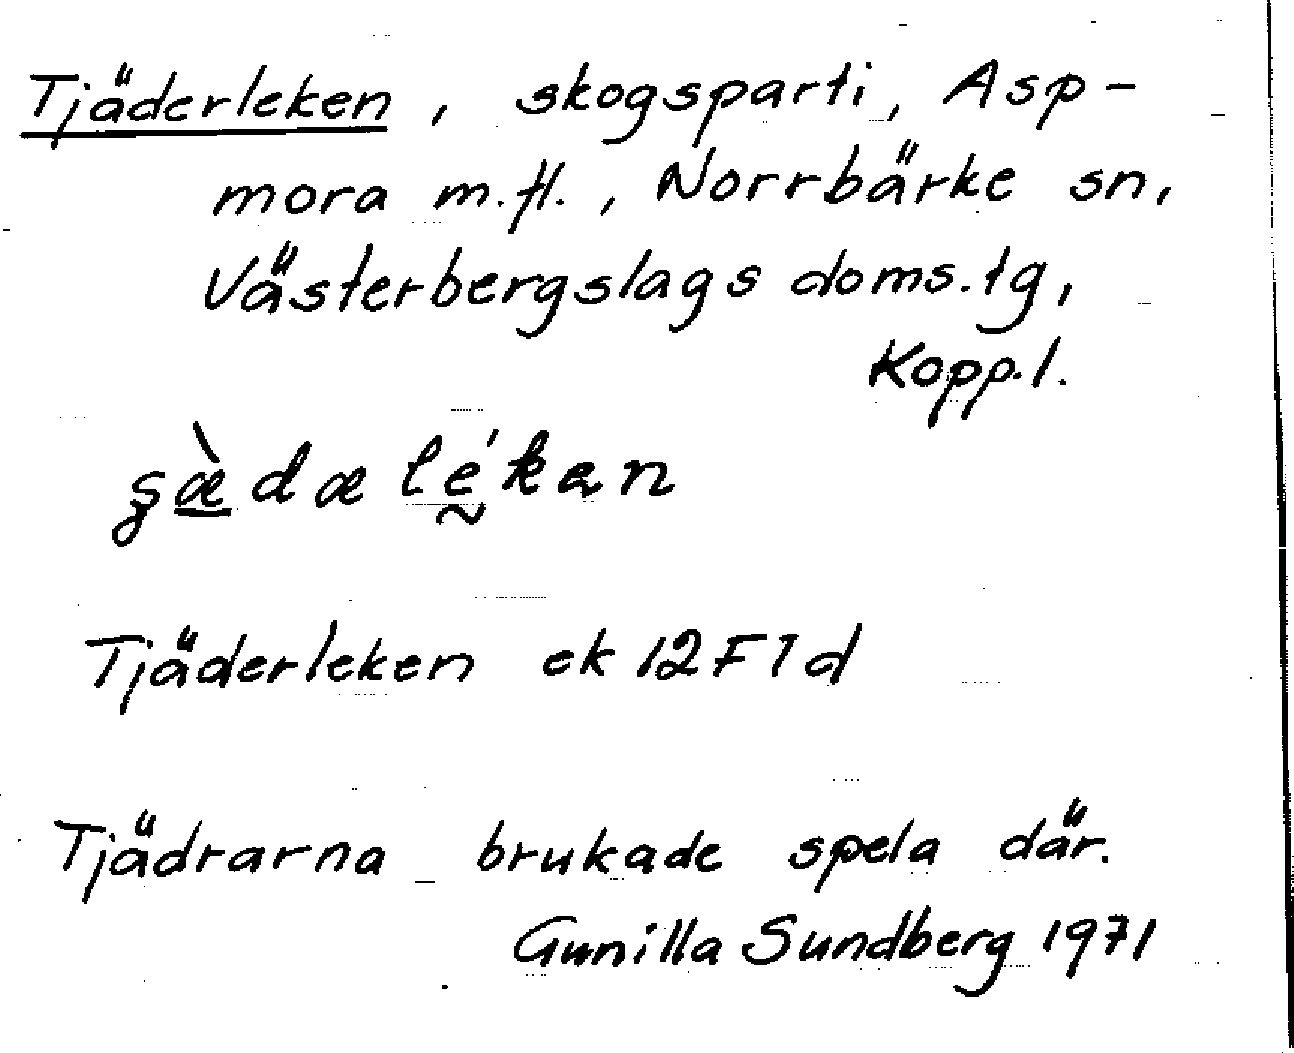 Tjäderleken, skogsparti, Asp-
mora m.fl., Norrbärke sn,
Västerbergslags doms.tg,
Kopp.l.
Tjäderleken ek 12F7d
Tjädrarna brukade spela där.
Gunilla Sundberg 1971